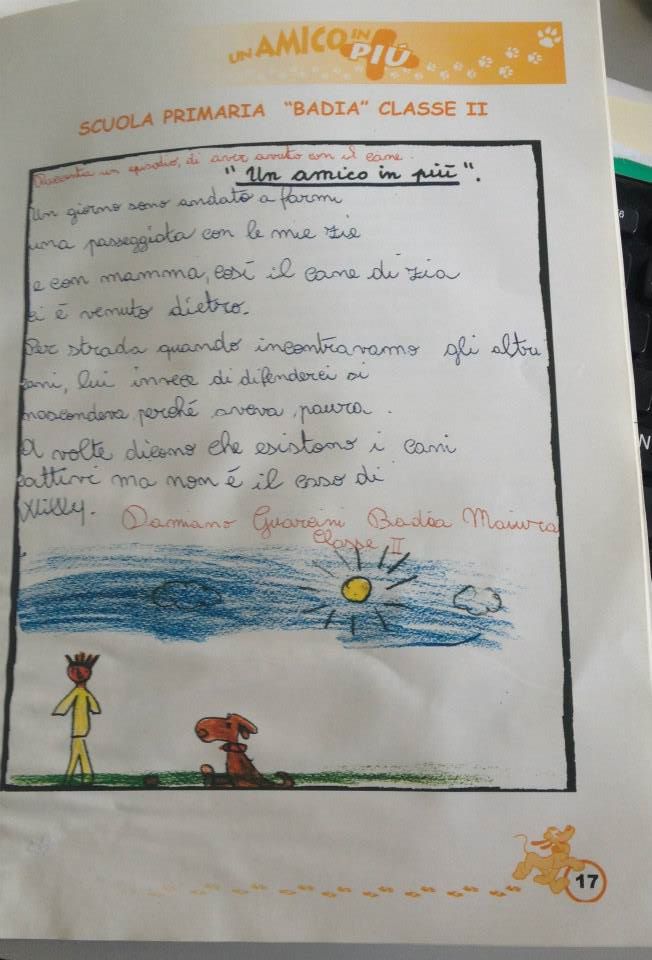 UN AMICO IN PIÚ
SCUOLA PRIMARIA "BADIA" CLASSE II
Racconta un episodio, di aver avuto con il cane.
"Un amico in più".
Un giorno sono andato a farmi
una passeggiata con le mie zie
e con mamma, così il cane di zia
ci é venuto dietro.
Per strada quando incontravamo gli altri
cani, lui invece di difenderci si
nascondeva perché aveva paura.
A volte dicono che esistono i cani
cattivi ma non é il caso di
Willy.
Damiano Guarini Badia Maiura
Classe II
17